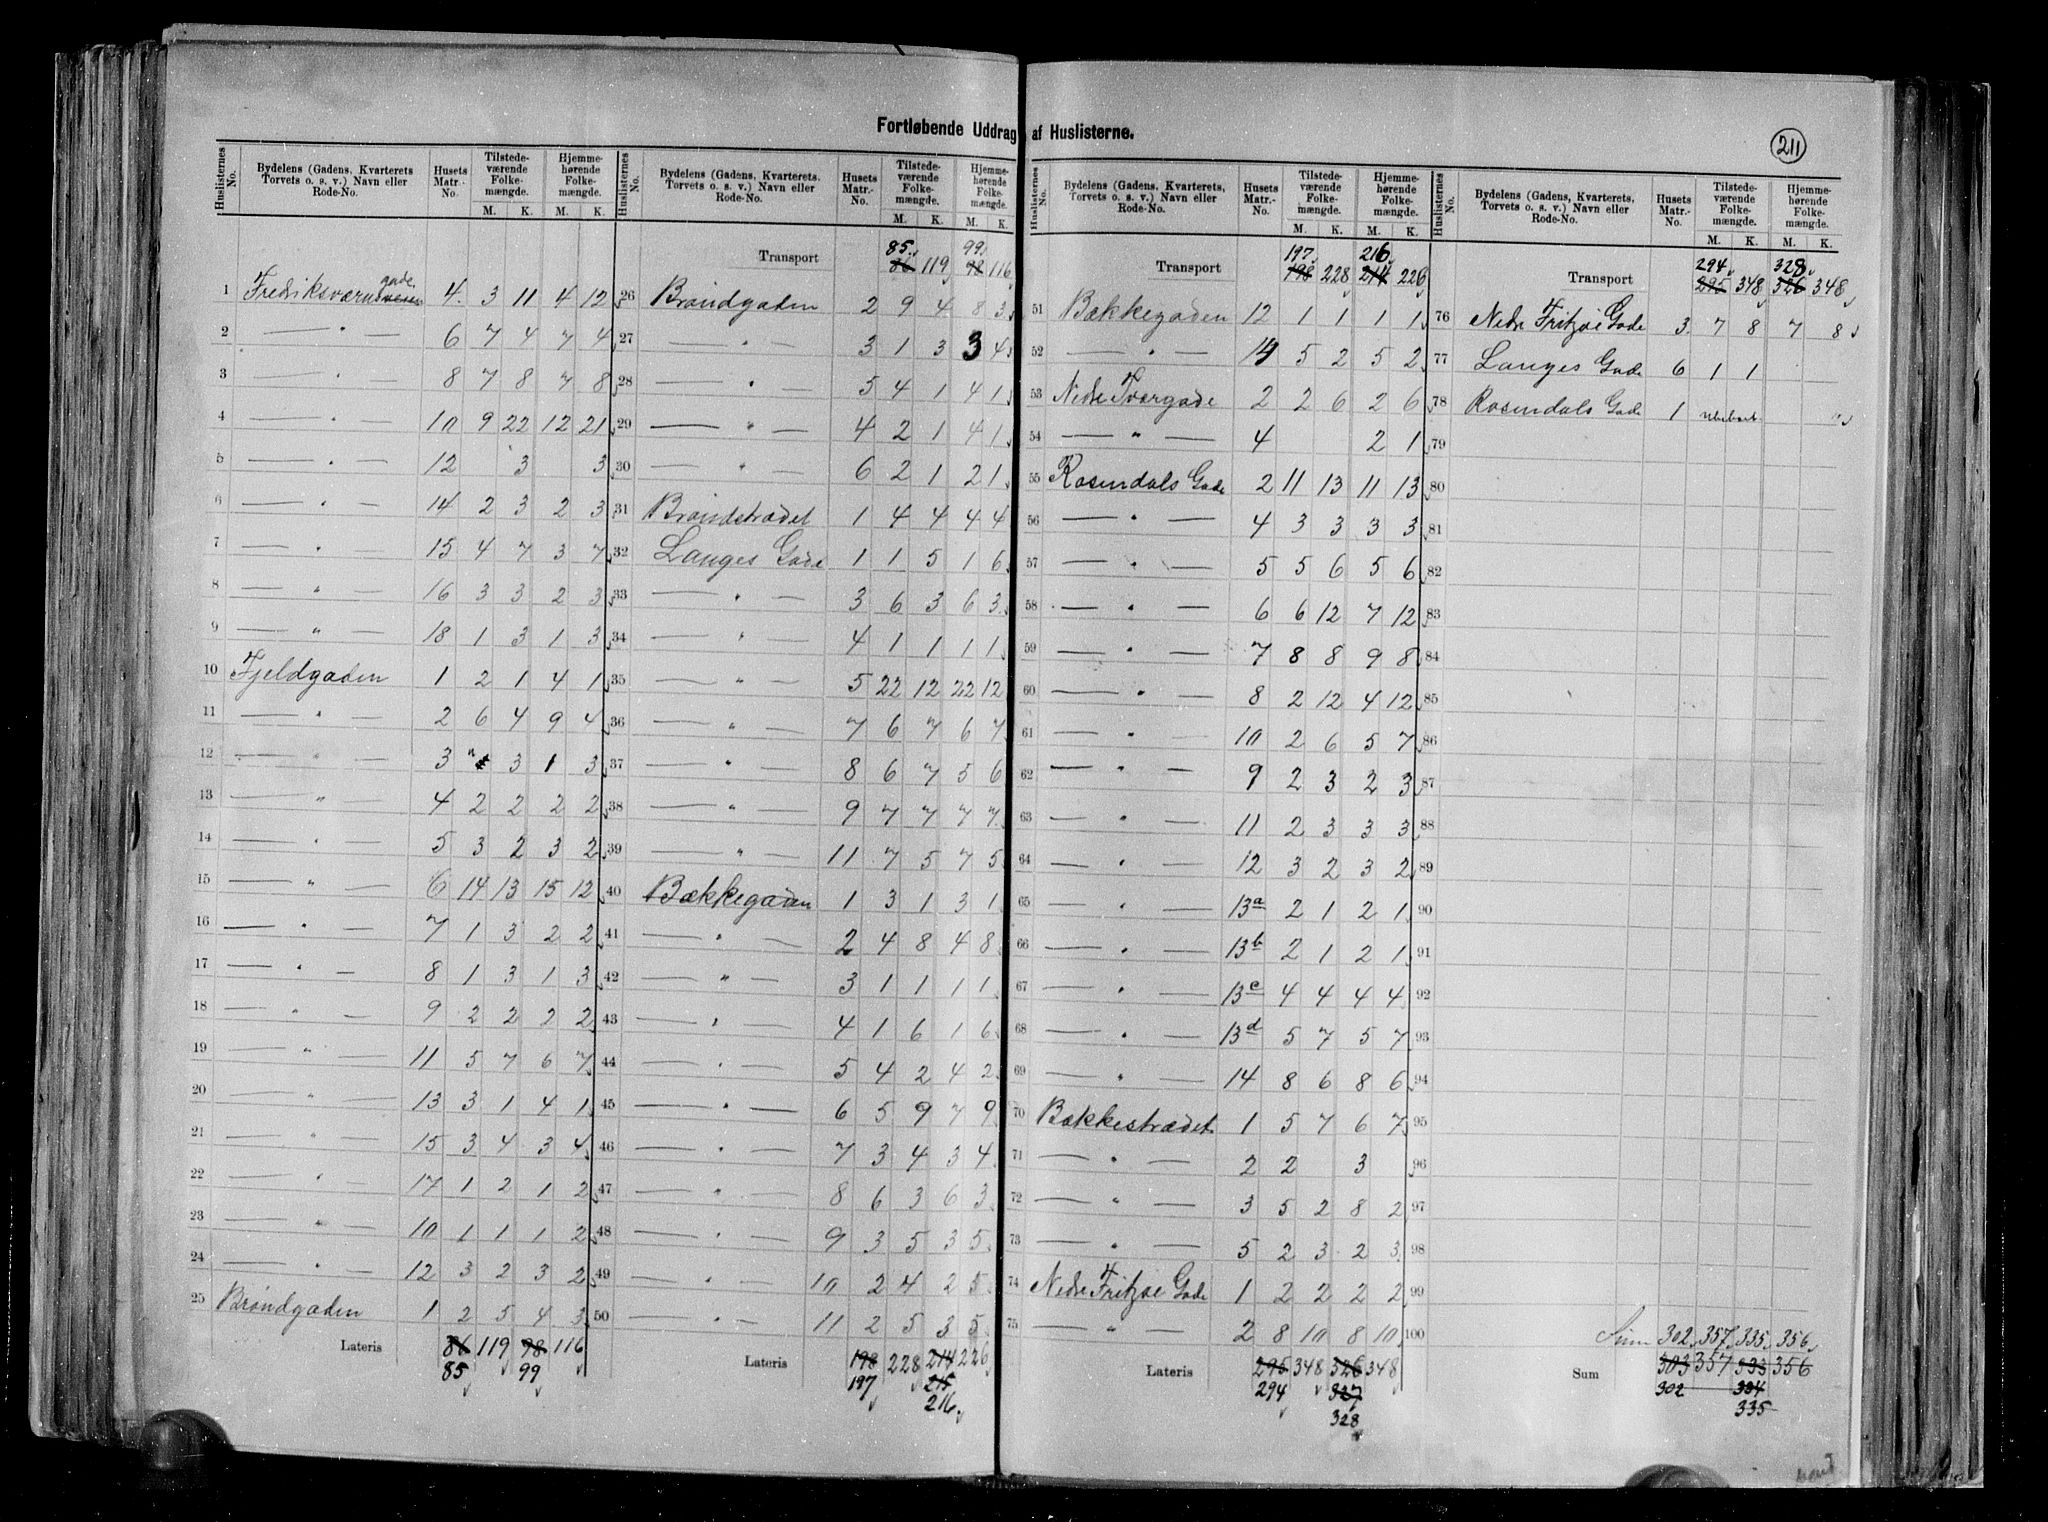 Fortløbende Uddrag af Huslisterne.
211
Huslisternes No. Bydelens (Gadens, Kvarterets Torvets o. s. v.) Navn eller Rode-No. Husets Matr.-No. Tilstedeværende Folkemængde. M. K. Hjemmehørende Folkemængde. M. K.
1 Fredriksværns gade 4. 3 11 4 12
2 — " — 6 7 4 7 4
3 — " — 8 7 8 7 8
4 — " — 10 9 22 12 21
5 — " — 12 3 3
6 — " — 14 2 3 2 3
7 — " — 15 4 7 3 7
8 — " — 16 3 3 2 3
9 — " — 18 1 3 1 3
10 Fjeldgaden 1 2 1 4 1
11 — " — 2 6 4 9 4
12 — " — 3 " 3 1 3
13 — " — 4 2 2 2 2
14 — " — 5 3 2 3 2
15 — " — 6 14 13 15 12
16 — " — 7 1 3 2 2
17 — " — 8 1 3 1 3
18 — " — 9 2 2 2 2
19 — " — 11 5 7 6 7
20 — " — 13 3 1 4 1
21 — " — 15 3 4 3 4
22 — " — 17 1 2 1 2
23 — " — 10 1 1 1 2
24 — " — 12 3 2 3 2
25 Brøndgaden 1 2 5 4 3
Lateris 86 119 98 116
85 99
Huslisternes No. Bydelens (Gadens, Kvarterets. Torvets o. s. v.) Navn eller Rode-No. Husets Matr.-No. Tilstedeværende Folkemængde. M. K. Hjemmehørende Folkemængde. M. K.
85. 99
Transport 86 119 98 116
26 Brøndgaden 2 9 4 8 3
27 — " — 3 1 3 3 4
28 — " — 5 4 1 4 1
29 — " — 4 2 1 4 1
30 — " — 6 2 1 2 1
31 Brøndstrædet 1 4 4 4 4
32 Langes Gade 1 1 5 1 6
33 — " — 3 6 3 6 3
34 — " — 4 1 1 1 1
35 — " — 5 22 12 22 12
36 — " — 7 6 7 6 7
37 — " — 8 6 7 5 6
38 — " — 9 7 7 7 7
39 — " — 11 7 5 7 5
40 Bækkegaden 1 3 1 3 1
41 — " — 2 4 8 4 8
42 — " — 3 1 1 1 1
43 — " — 4 1 6 1 6
44 — " — 5 4 2 4 2
45 — " — 6 5 9 7 9
46 — " — 7 3 4 3 4
47 — " — 8 6 3 6 3
48 — " — 9 3 5 3 5
49 — " — 10 2 4 2 5
50 — " — 11 2 5 3 5
Lateris 198 228 214 226
197 215
216
Huslisternes No. Bydelens (Gadens, Kvarterets, Torvets o. s. v.) Navn eller Rode-No. Husets Matr.-No. Tilstedeværende Folkemængde. M. K. Hjemmehørende Folkemængde. M. K.
197 216
Transport 198 228 214 226
51 Bækkegaden 12 1 1 1 1
52 — " — 14 5 2 5 2
53 Nedre Tvergade 2 2 6 2 6
54 — " — 4 2 1
55 Rosendals Gade 2 11 13 11 13
56 — " — 4 3 3 3 3
57 — " — 5 5 6 5 6
58 — " — 6 6 12 7 12
59 — " — 7 8 8 9 8
60 — " — 8 2 12 4 12
61 — " — 10 2 6 5 7
62 — " — 9 2 3 2 3
63 — " — 11 2 3 3 3
64 — " — 12 3 2 3 2
65 — " — 13a 2 1 2 1
66 — " — 13b 2 1 2 1
67 — " — 13c 4 4 4 4
68 — " — 13d 5 7 5 7
69 — " — 14 8 6 8 6
70 Bækkestrædet 1 5 7 6 7
71 — " — 2 2 3
72 — " — 3 5 2 8 2
73 — " — 5 2 3 2 3
74 Nedre Fritzøe Gade 1 2 2 2 2
75 — " — 2 8 10 8 10
Lateris 295 348 326 348
294 327
328
Huslisternes No. Bydelens (Gadens, Kvarterets, Torvets o. s. v.) Navn eller Rode-No. Husets Matr.-No. Tilstedeværende Folkemængde. M. K. Hjemmehørende Folkemængde. M. K.
294 328
Transport 295 348 326 348
76 Nedre Fritzøe Gade 3 7 8 7 8
77 Langes Gade 6 1 1
78 Rosendals Gade 1 ubeboet "
79
80
81
82
83
84
85
86
87
88
89
90
91
92
93
94
95
96
97
98
99
100
Sum 302 357 335 356
Sum 303 357 333 356
302 334
335